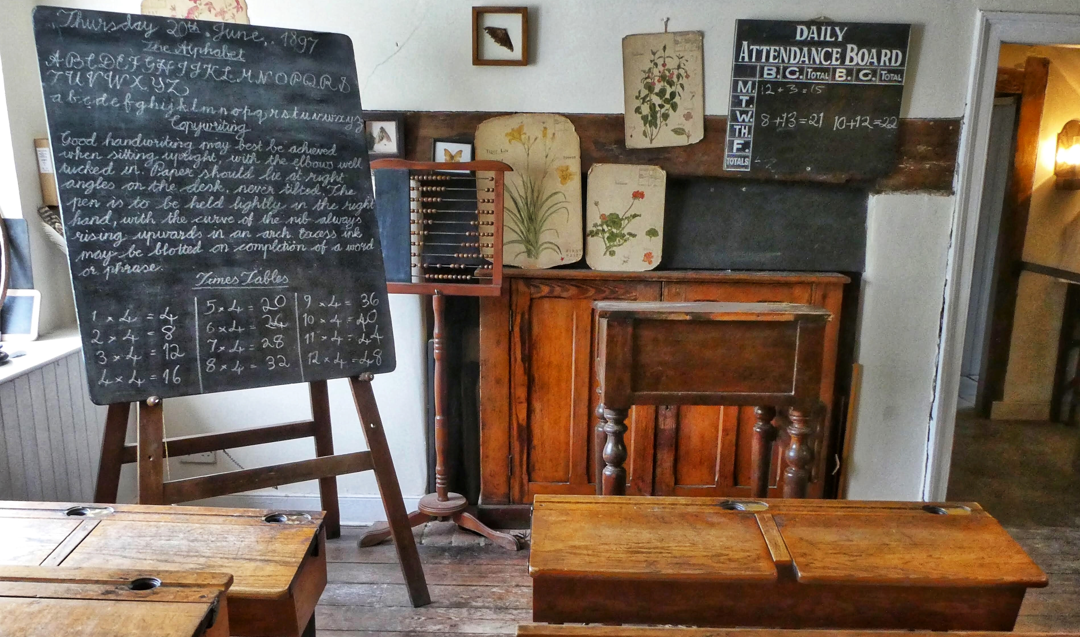 Thursday 20th June, 1897
The Alphabet
A B C D E F G H I J K L M N O P Q R S
T U V W X Y Z
a b c d e f g h i j k l m n o p q r s t u v w x y z
Copywriting
Good handwriting may best be achieved
when sitting upright, with the elbows well
tucked in. Paper should lie at right
angles on the desk, never tilted. The
pen is to be held lightly in the right
hand, with the curve of the nib always
rising upwards in an arch. Excess ink
may be blotted on completion of a word
or phrase.
Times Tables
1 x 4 = 4
2 x 4 = 8
3 x 4 = 12
4 x 4 = 16
5 x 4 = 20
6 x 4 = 24
7 x 4 = 28
8 x 4 = 32
9 x 4 = 36
10 x 4 = 40
11 x 4 = 44
12 x 4 = 48
DAILY
ATTENDANCE BOARD
B. G. TOTAL B. G. TOTAL
M. 12 + 3 = 15
T.
W. 8 + 13 = 21 10 + 12 = 22
TH.
F.
TOTALS